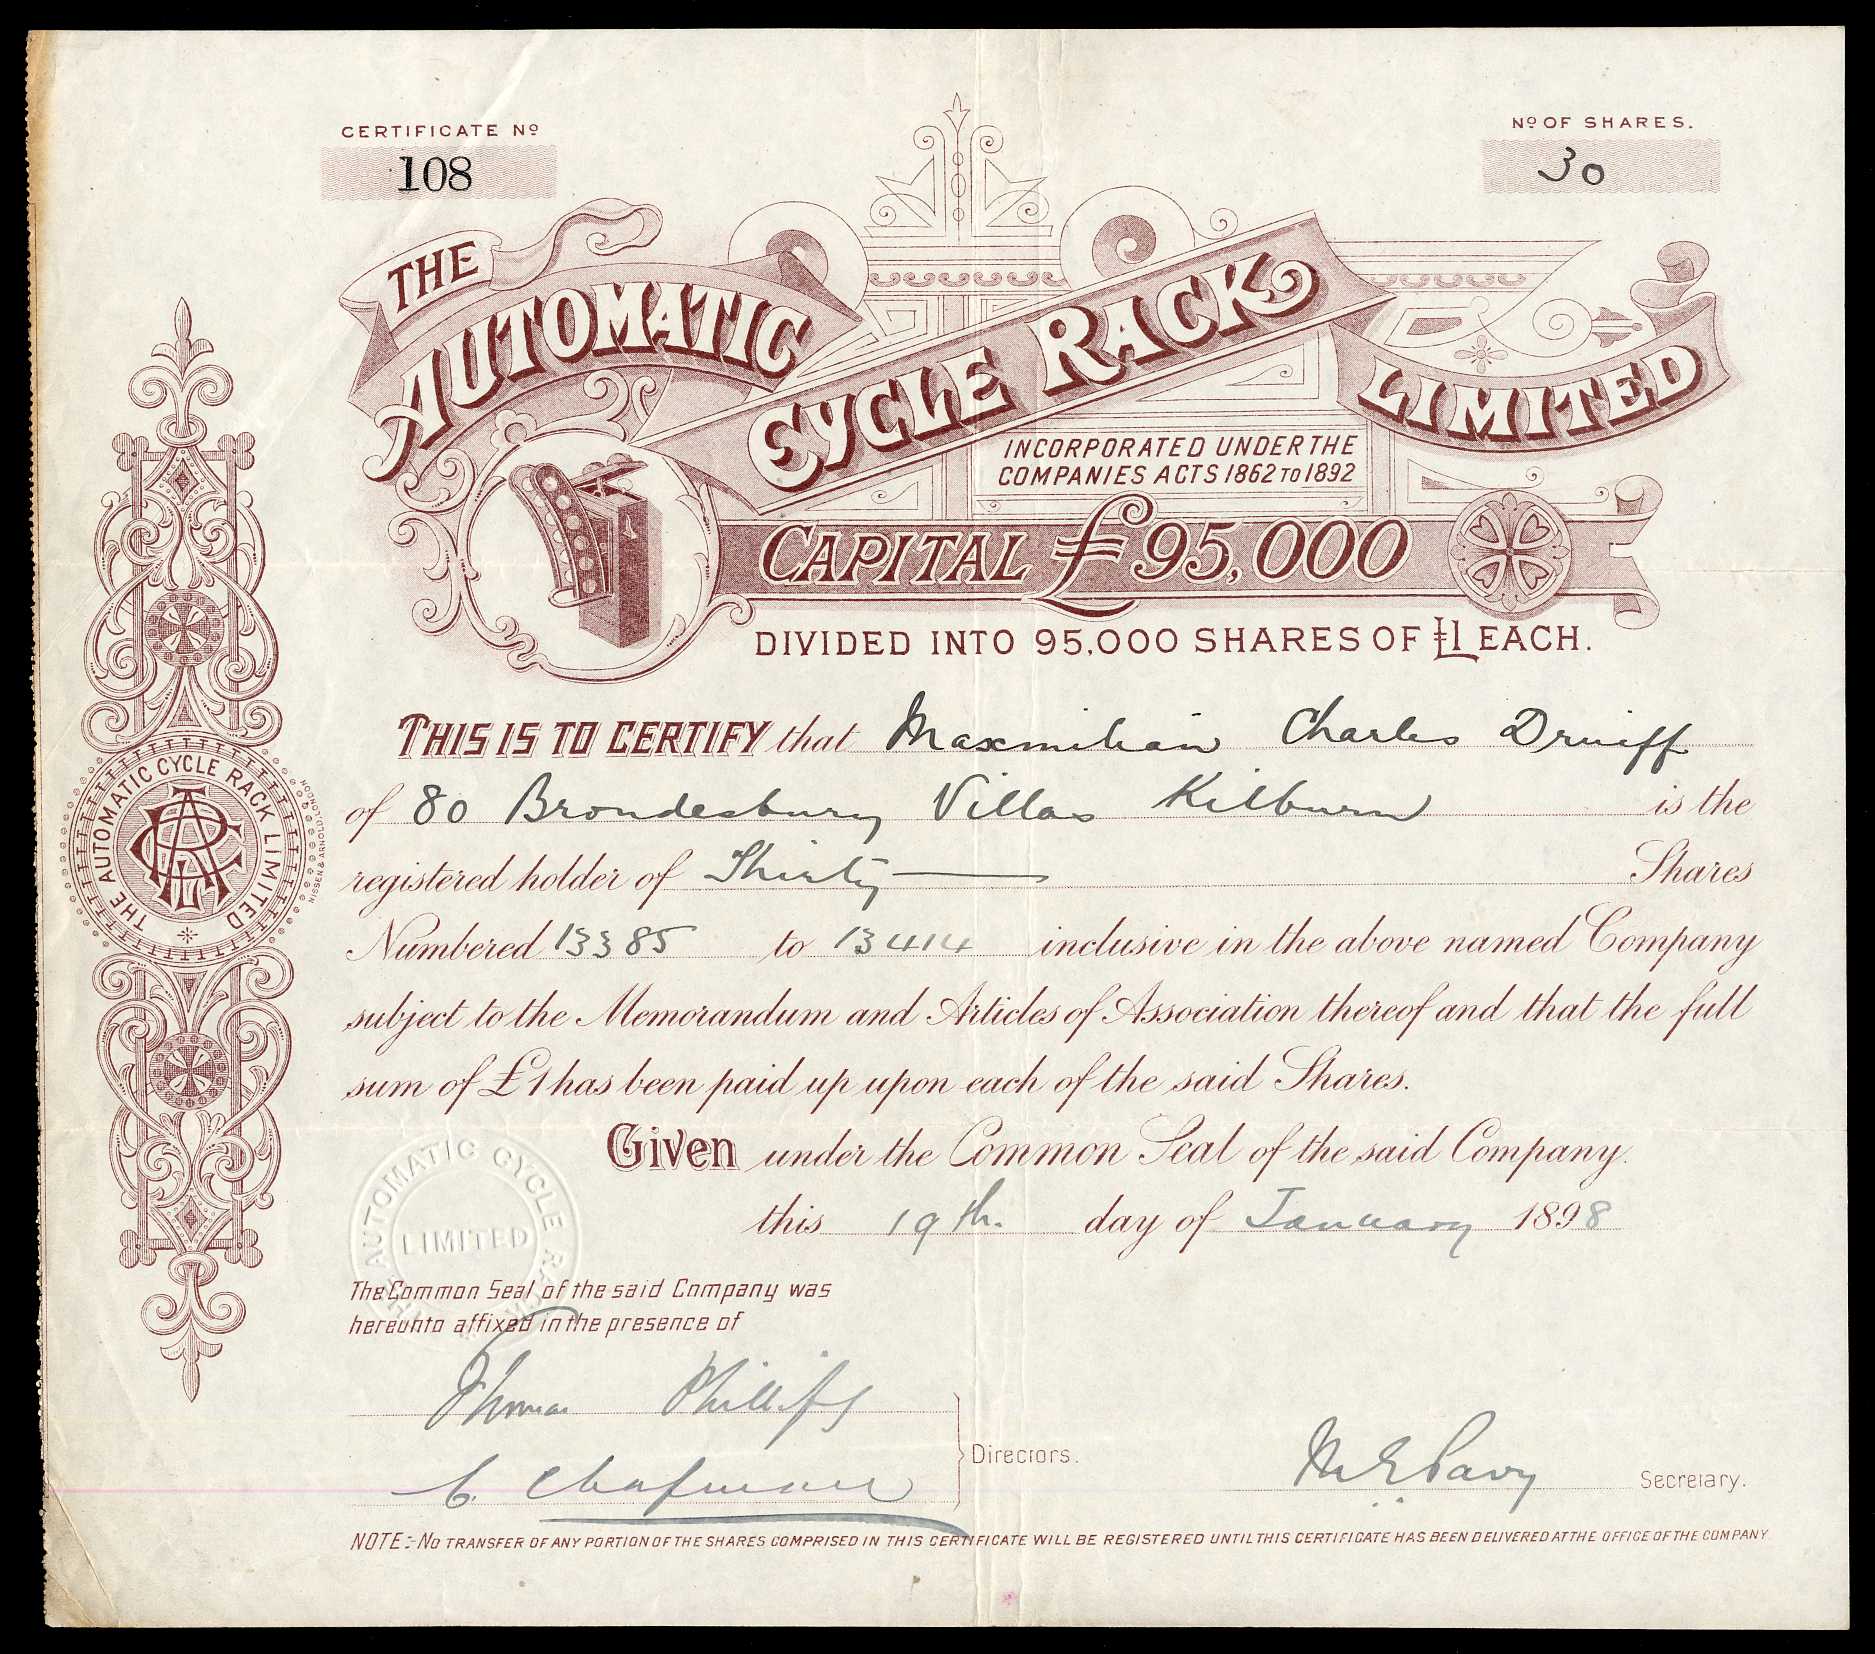 CERTIFICATE Nº
108
Nº OF SHARES.
30
THE
AUTOMATIC
CYCLE RACK
LIMITED
INCORPORATED UNDER THE
COMPANIES ACTS 1862 TO 1892
CAPITAL £95,000
DIVIDED INTO 95,000 SHARES OF £1 EACH.
THIS IS TO CERTIFY that Maxmilian Charles Druiff
of 80 Brondesbury Villas Kilburn is the
registered holder of Thirty Shares
Numbered 13385 to 13414 inclusive in the above named Company
subject to the Memorandum and Articles of Association thereof and that the full
sum of £1 has been paid up upon each of the said Shares.
Given under the Common Seal of the said Company.
this 19th. day of January 1898
The Common Seal of the said Company was
hereunto affixed in the presence of
Thomas Phillips
C. Chapman
Directors.
M E Pavy
Secretary.
NOTE:- NO TRANSFER OF ANY PORTION OF THE SHARES COMPRISED IN THIS CERTIFICATE WILL BE REGISTERED UNTIL THIS CERTIFICATE HAS BEEN DELIVERED AT THE OFFICE OF THE COMPANY
THE AUTOMATIC CYCLE RACK LIMITED
NISSEN & ARNOLD, LONDON
AUTOMATIC CYCLE
LIMITED